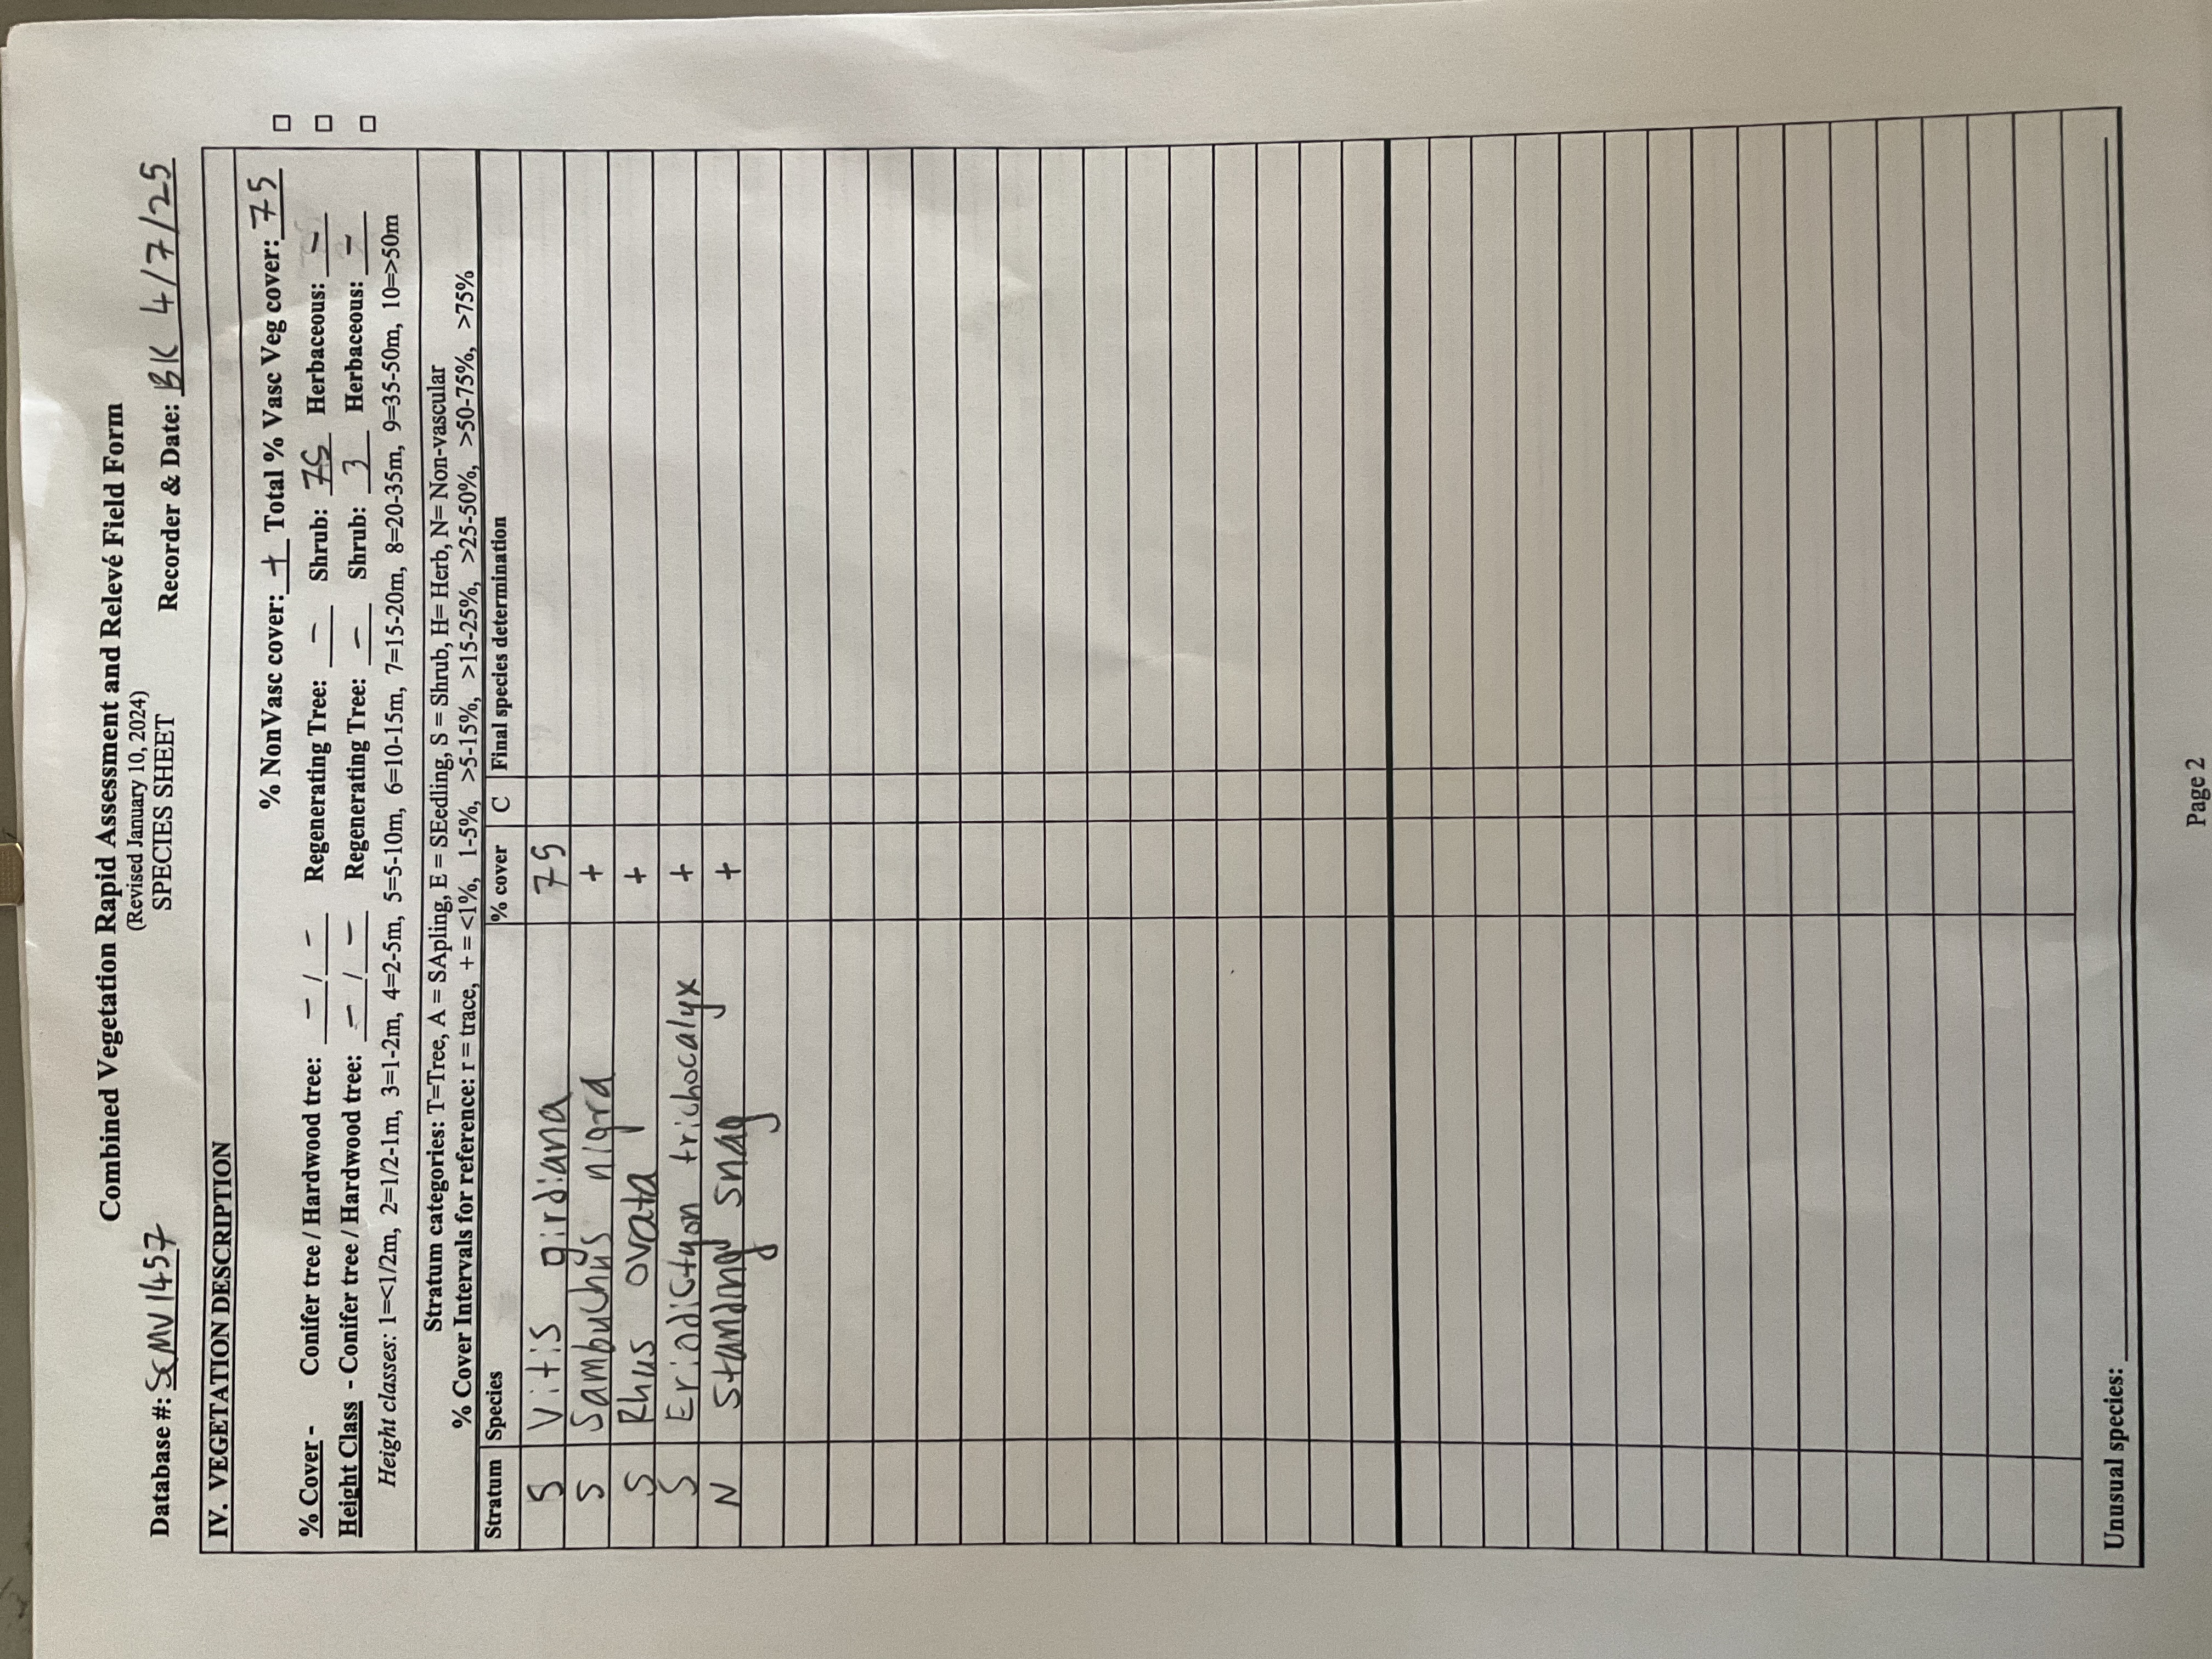 Combined Vegetation Rapid Assessment and Relevé Field Form
(Revised January 10, 2024)
SPECIES SHEET
Database #: SCMV1457 Recorder & Date: BK 4/7/25
IV. VEGETATION DESCRIPTION
% NonVasc cover: + Total % Vasc Veg cover: 75 □
% Cover - Conifer tree / Hardwood tree: - / - Regenerating Tree: - Shrub: 75 Herbaceous: - □
Height Class - Conifer tree / Hardwood tree: - / - Regenerating Tree: - Shrub: 3 Herbaceous: - □
Height classes: 1=<1/2m, 2=1/2-1m, 3=1-2m, 4=2-5m, 5=5-10m, 6=10-15m, 7=15-20m, 8=20-35m, 9=35-50m, 10=>50m
Stratum categories: T=Tree, A = SApling, E = SEedling, S = Shrub, H= Herb, N= Non-vascular
% Cover Intervals for reference: r = trace, + = <1%, 1-5%, >5-15%, >15-25%, >25-50%, >50-75%, >75%
Stratum Species % cover C Final species determination
S Vitis girdiana 75
S Sambuchus nigra +
S Rhus ovata +
S Eriodictyon trichocalyx +
N Standing snag +
Unusual species:
Page 2